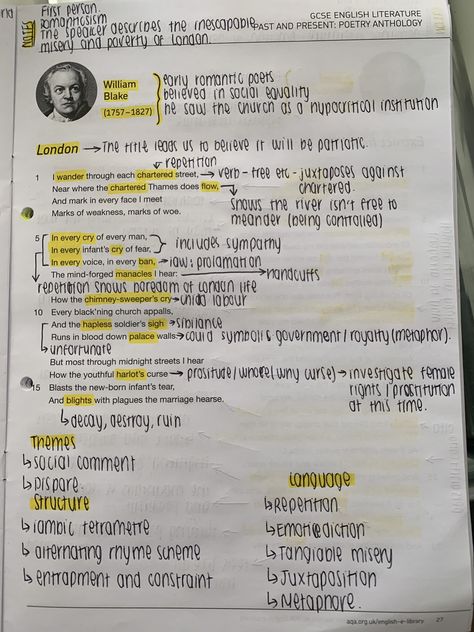 First person.
romanticism
NOTES
The speaker describes the inescapable
misery and poverty of London.
GCSE ENGLISH LITERATURE
PAST AND PRESENT: POETRY ANTHOLOGY
William
Blake
(1757–1827)
early romantic poets
believed in social equality
he saw the church as a hypocritical institution
London → The title leads us to believe it will be patriotic.
repetition
1 I wander through each chartered street, → verb - free etc - juxtaposes against
Near where the chartered Thames does flow, chartered.
And mark in every face I meet shows the river isn't free to
Marks of weakness, marks of woe. meander (being controlled)
5 In every cry of every man,
In every infant's cry of fear, includes sympathy
In every voice, in every ban, → law: proclamation
The mind-forged manacles I hear: → handcuffs
repetition shows boredom of London life
How the chimney-sweeper's cry → child labour
10 Every black'ning church appalls,
And the hapless soldier's sigh → sibilance
Runs in blood down palace walls → could symbolis government / royalty (metaphor).
↳ unfortunate
But most through midnight streets I hear
How the youthful harlot's curse → prositude / whore (why curse) → investigate female
15 Blasts the new-born infant's tear, rights / prostitution
And blights with plagues the marriage hearse. at this time.
↳ decay, destroy, ruin
Themes
↳ social comment
↳ Dispare.
Structure
↳ iambic tetrametre
↳ alternating rhyme scheme
↳ entrapment and constraint
Language
↳ Repetition
↳ Emotive diction
↳ Tangiable misery
↳ Juxtaposition
↳ Metaphore.
aqa.org.uk/english-e-library 27